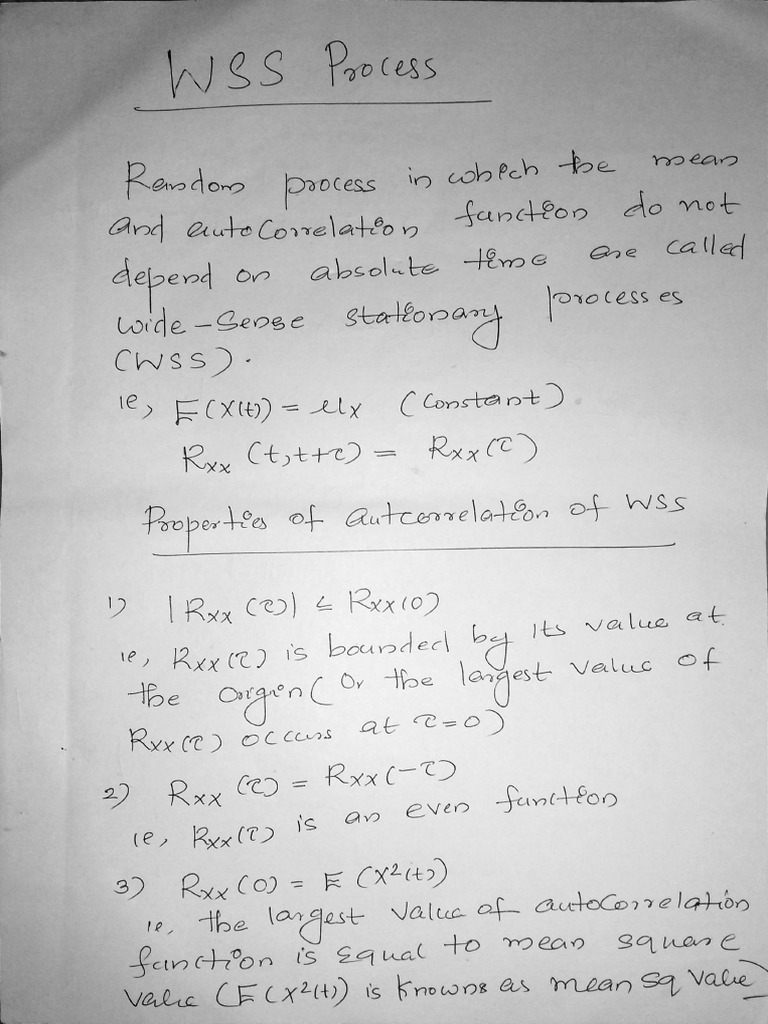 WSS Process
Random process in which the mean
and autoCorrelation function do not
depend on absolute time are called
wide-Sense stationary processes
(WSS).
ie, E(X(t)) = μx (Constant)
Rxx (t,t+τ) = Rxx(τ)
Properties of autcorrelation of WSS
1) |Rxx (τ)| ≤ Rxx(0)
ie, Rxx(τ) is bounded by its value at
the origin (Or the largest value of
Rxx(τ) occurs at τ=0)
2) Rxx (τ) = Rxx(-τ)
ie, Rxx(τ) is an even function
3) Rxx (0) = E (X²(t))
ie, the largest value of autoCorrelation
function is Equal to mean square
value (E(X²(t)) is knowns as mean sq value)